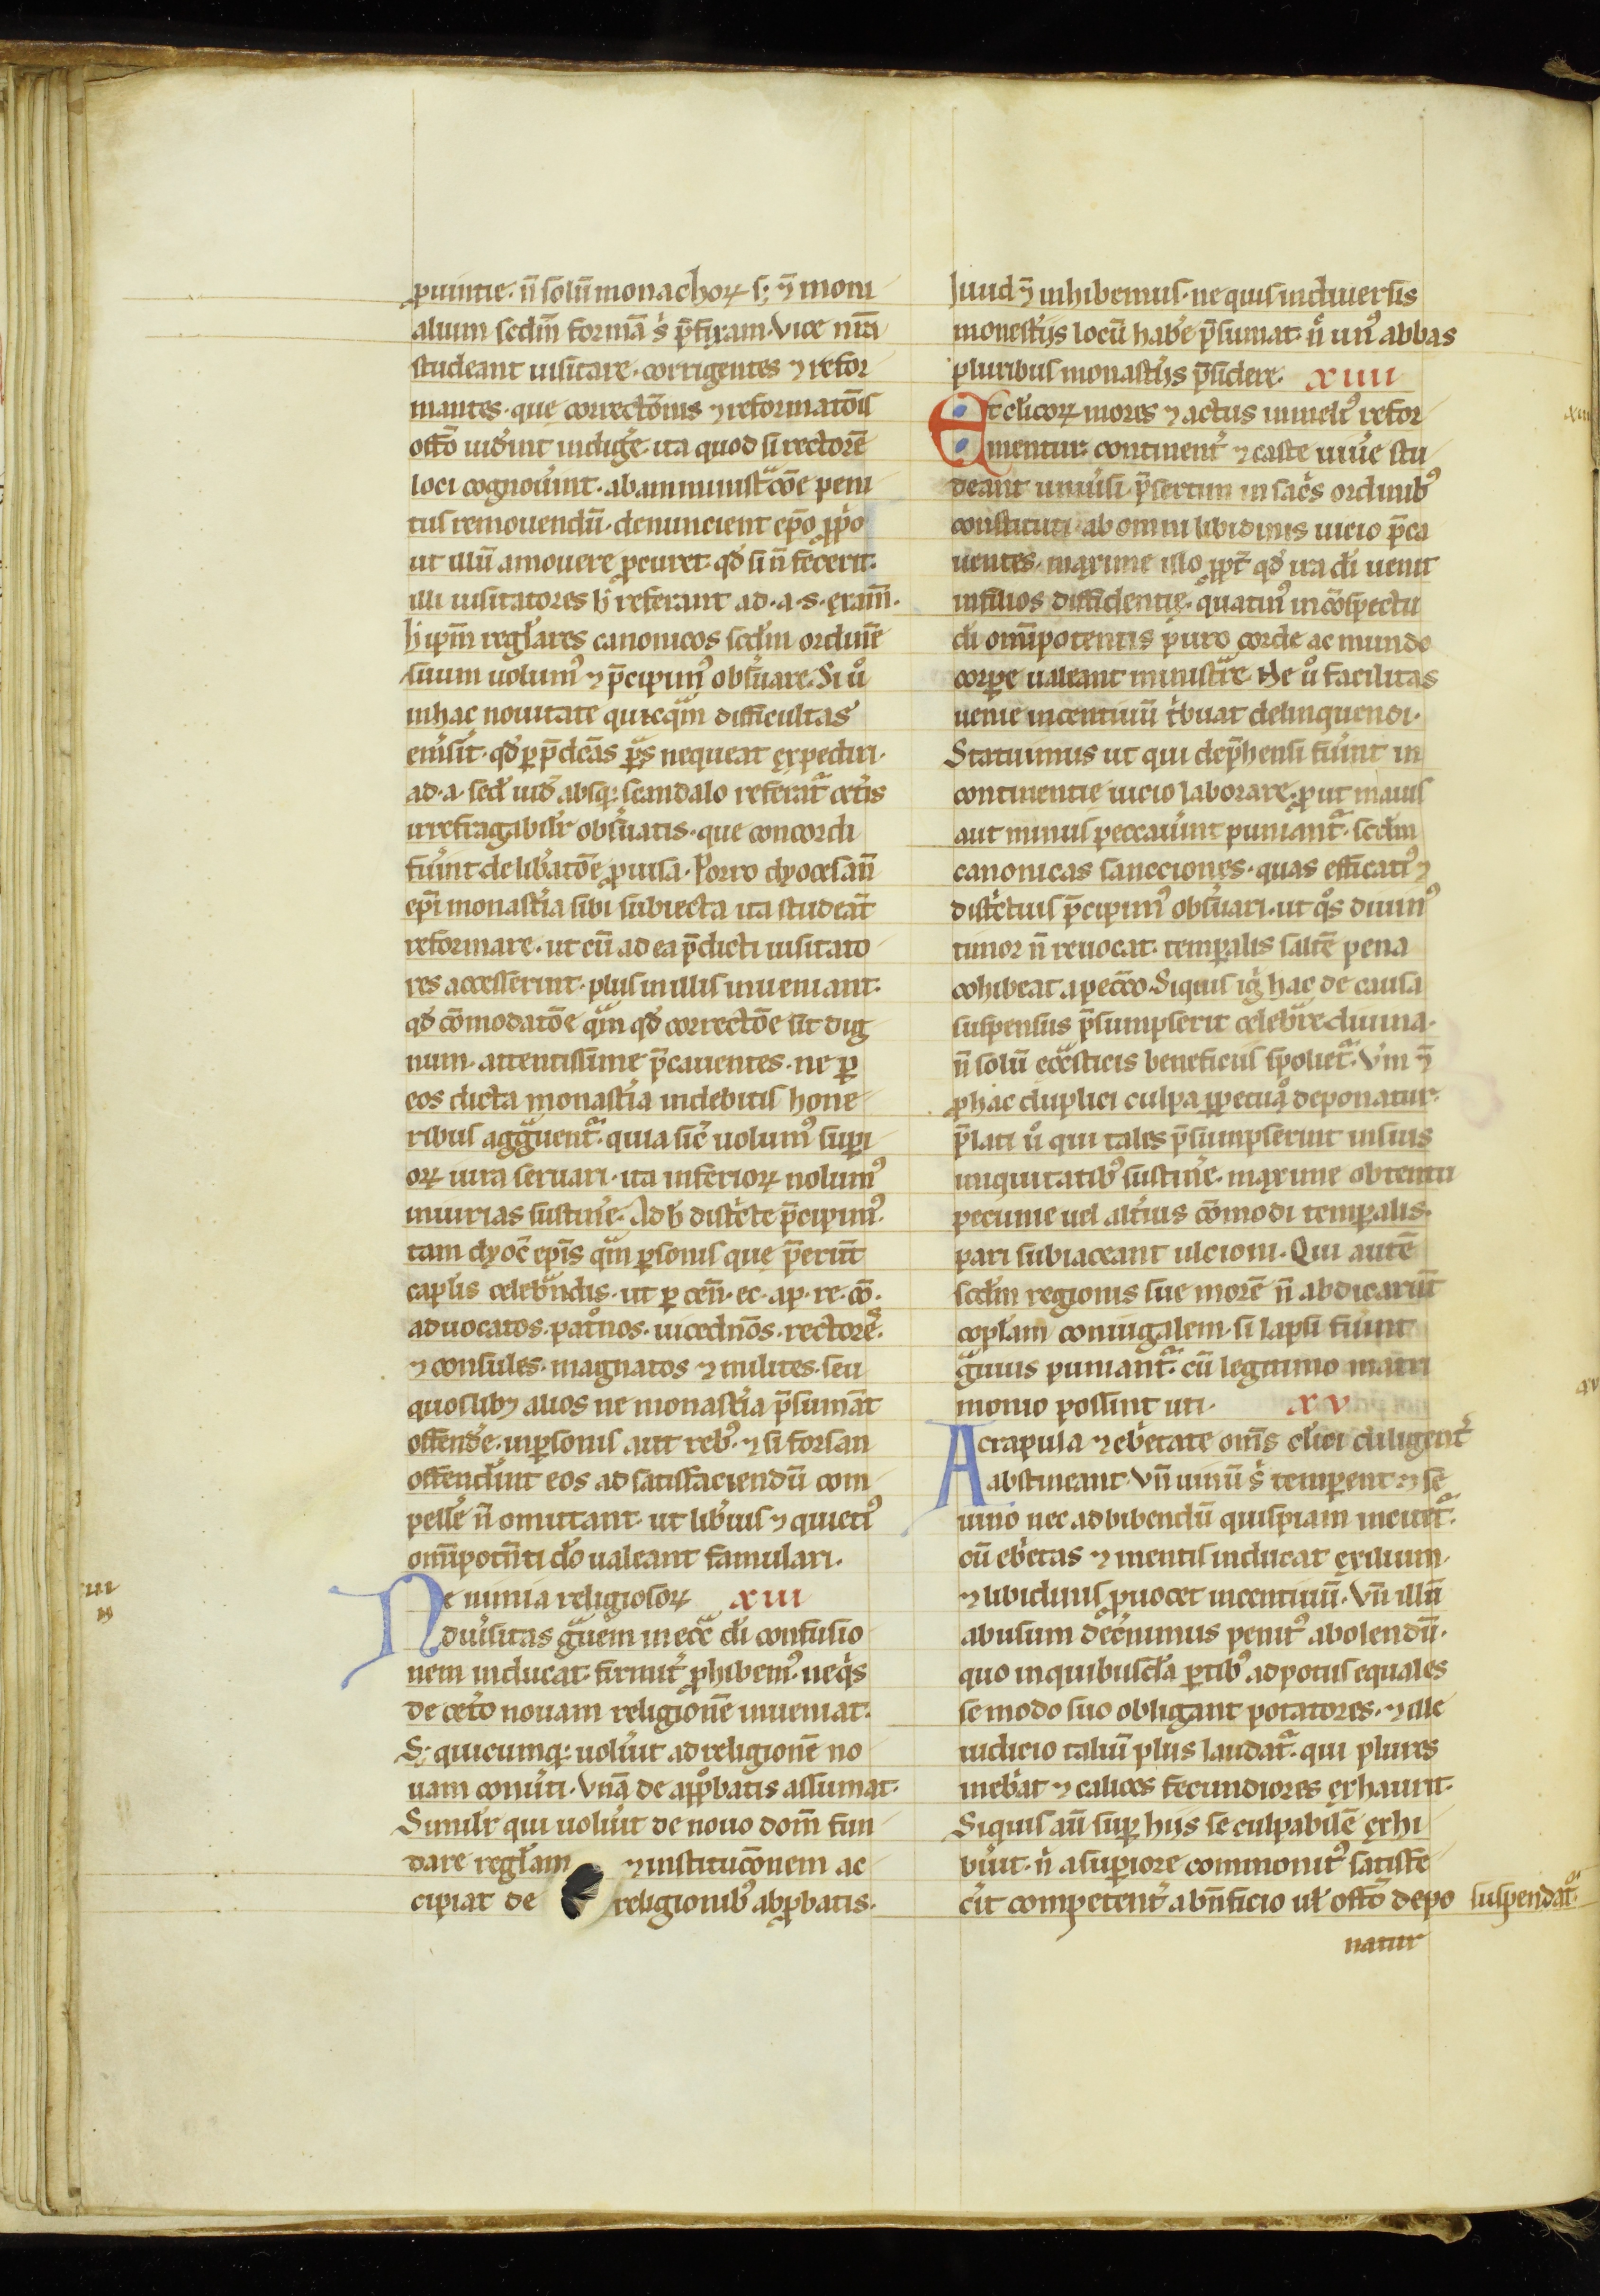 ꝓuintie· n̄ solū monachoꝝ s; ⁊̄ moni
alium scdm̄ formā s̾ p̄fixam· Vice nr̄a
studeant uisitare· corrigentes ⁊ refor
mantes· que correctōnis ⁊ reformatōis
offō uid̾int indige̾· ita quod si rectorē
loci cognou̾int· ab amministᵃcōe peni
tus remouendū· denuncient ep̄o ꝓp̾o
ut illū amouere ꝓcuret· qd̾ si n̄ fecerit·
illi uisitatores h̾ referant ad·a·s·exam̄·
h̾ ip̄m regl̾ares canonicos scdm̄ ordinē
suum uolum⁹ ⁊ p̄cipim⁹ obs̾uare· Si u̾o
in hac nouitate quicqᵃm difficultas
em̾s̾it· qd̾ ꝑ p̄dcās ꝑs̄ nequeat expediri·
ad·a·sed̾ iud̾ absq; scandalo referatᵃ cet̾is
irrefragabilr̾ obs̾uatis· que concordi
fu̾int delib̾atōe ꝓuisa· Porro dyocesan̄
ep̄i monast̾ia sibi subiecta ita studeāt
reformare· ut cū ad ea p̄dicti uisitato
res accesserint· plus in illis inueniant·
qd̾ cōmodatōe qᵃm qd̾ correctōe sit dig
num· attentissime p̄cauentes· ne ꝑ
eos dicta monast̾ia indebitis hone
ribus aggᵃuentᵃ· quia sic̾ uolum⁹ supi
oꝝ iura seruari· ita inferioꝝ nolum⁹
iniurias sustine̾· Ad h̾ distⁱcte p̄cipim⁹·
tam dyoc̄ ep̄is qᵃm ꝑsonis que p̄erūt
capl̾is celebᵃndis· ut ꝑ cen̄· ec· ap· re· cō·
aduocatos· patᵒnos· uicednōs· rectorēs·
⁊ consules· magnatos ⁊ milites· seu
quoslibꝫ alios ne monast̾ia p̄sumāt
offende̾· in ꝑsonis aut reb⁹· ⁊ si forsan
offend̾int eos ad satisfaciendū com
pelle̾ n̄ omittant· ut lib̾ius ⁊ quieti⁹
omīpotn̄ti do̾ ualeant famulari·
Ne nimia religiosoꝝ xiii
diu̾sitas gᵃuem in ecc̄ di̾ confusio
nem inducat· firmit̾ ꝓhibem⁹· ne qⁱs
de cet̾o nouam religionē inueniat·
S; quicumq; uolu̾it ad religionē no
uam conu̾ti· Vnā de app̾batis assumat·
Similr̾ qui uolu̾it de nouo dom̄ fun
dare regl̾am ⁊ institucōnem ac
cipiat de religionib⁹ ab ꝓbatis·
Iuud ⁊̄ inhibemus· ne quis in diuersis
monest̾ijs locū habe̾ p̄sumat· n̾ un⁹ abbas
pluribus monast̾ijs p̄sidere· xiiii
Ut cl̾icoꝝ mores ⁊ actus in meli⁹ refor
mentur· continent̾ ⁊ caste uiue̾ stu
deant uniu̾si· p̄sertim in sac̾s ordinib⁹
constituti· ab omni libidinis uicio p̄ca
uentes· maxime illo ꝓpt̄ qd̾ ira di̾ uenit
in filios diffidentie· quatin⁹ in cōspectu
di̾ omīpotentis puro corde ac mundo
corꝑe ualeant ministᵃre· Ne u̾o facilitas
uenie incentiuū tⁱbuat delinquendi·
Statuimus ut qui dep̄hensi fu̾int in
continentie uicio laborare· ꝓut maius
aut minus peccau̾int puniantᵃ· scdm̄
canonicas sancciones· quas efficati⁹ ⁊
distⁱctius p̄cipim⁹ obs̾uari· ut qᵒs diuin⁹
timor n̄ reuocat· temꝑalis saltē pena
cohibeat a peccō· Siquis ig̾ hac de causa
suspensus p̄sumpserit celebᵃre diuina·
n̄ solū ecc̄sticis beneficiis spolietᵃ· Vm̄ ⁊̄
ꝓ hac duplici culpa ꝑpetuo̾ deponatur·
p̄lati u̾o qui tales p̄sumpserint in suis
iniquitatib⁹ sustine̾· maxime obtentu
pecunie uel alt̾ius cōmodi temꝑalis·
pari subiaceant ulcioni· Qui autē
scdm̄ regionis sue morē n̄ abdicarūt
copl̾am coniugalem· si lapsi fu̾int
gᵃuius puniantᵃ· cū legitimo matri
monio possint uti· xv
A crapula ⁊ eb̾etate om̄s cl̾ici diligent̾
abstineant· Vn̄ uinū s̾ temꝑent ⁊ se
uino nec ad bibendū quispiam incitetᵃ·
cū eb̾etas ⁊ mentis inducat exilium·
⁊ libidinis ꝓuocet incentiuū· Vn̄ illū
abusum dec̾nimus penit⁹ abolendū·
quo in quibusda̾ ꝑtib⁹ ad potus equales
se modo suo obligant potatores· ⁊ ille
iudicio taliū plus laudatᵃ· qui plures
inebⁱat ⁊ calices fecundiores exhaurit·
Siquis aū suꝑ hijs se culpabilē exhi
bu̾it· n̾ a suꝑiore commonit⁹ satisfe
c̾it competent̾ a bn̄ficio ul̾ offō depo suspendatᵃ·
natur